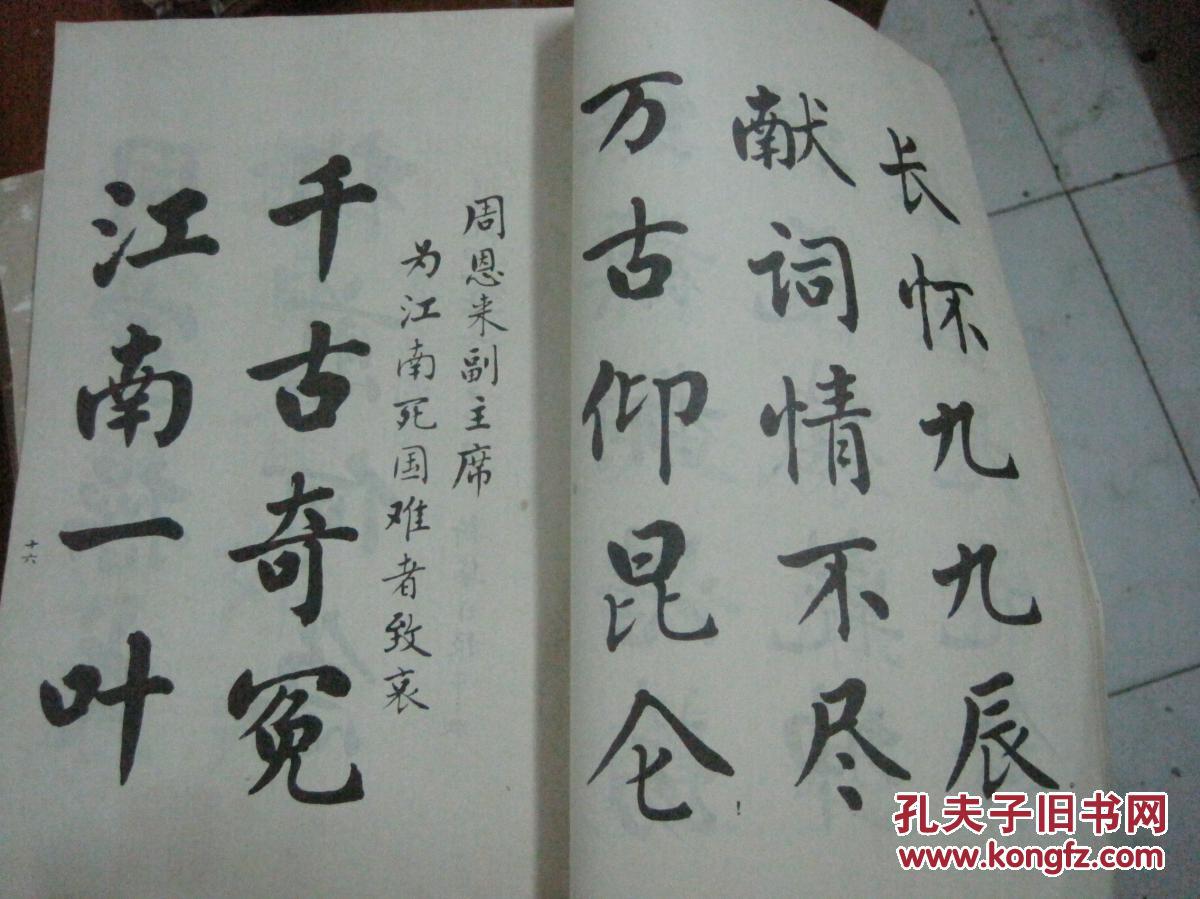 长怀九九辰
献词情不尽
万古仰昆仑
!
周恩来副主席
为江南死国难者致哀
千古奇冤
江南一叶
十六
孔夫子旧书网
www.kongfz.com